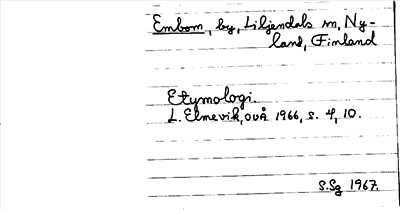 Embom, by, Liljendals sn, Ny-
land, Finland
Etymologi.
L. Elmevik, OUÅ 1966, s. 4, 10.
S.Sg 1967.